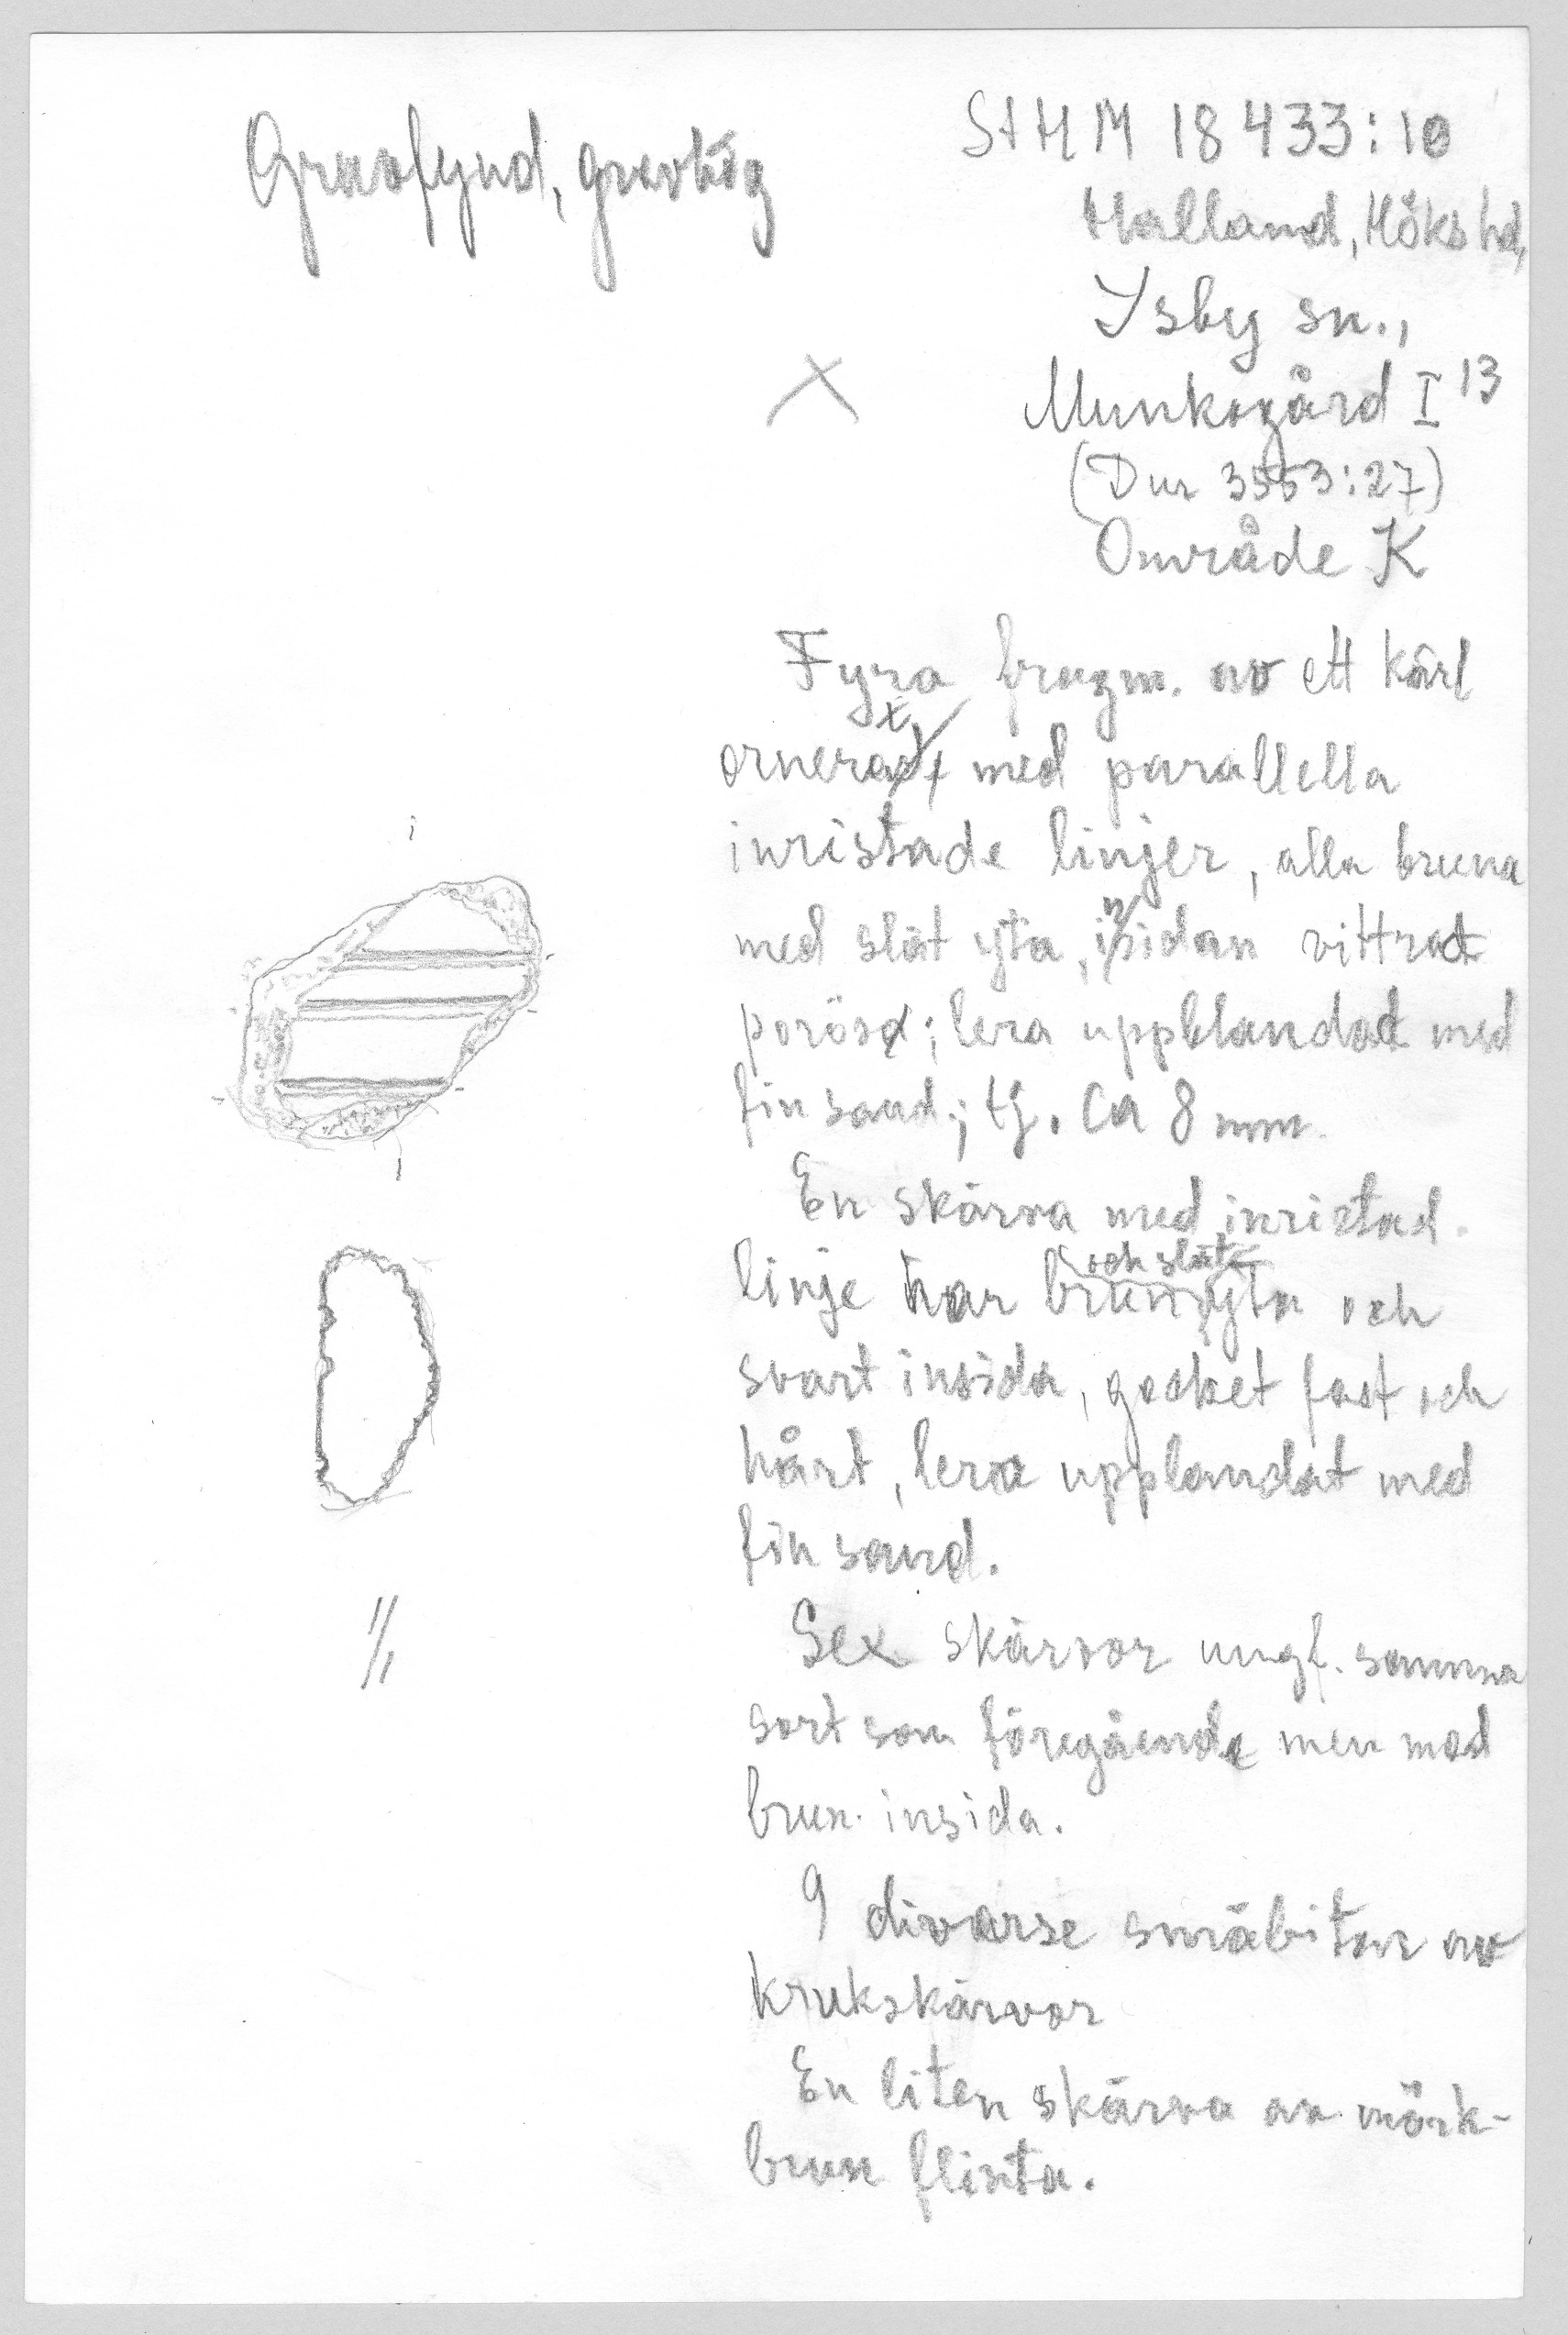 Gravfynd, gravhög
StHM 18 433:10
Halland, Höks hd,
Ysby sn.,
Munkagård I 13
(Dnr 3553:27)
Område K
Fyra fragm. av ett kärl
ornerat med parallella
inristade linjer, alla bruna
med slät yta, insidan vittrad
porös; lera uppblandad med
fin sand; tj. ca 8 mm.
En skärva med inristad
linje har brun och slät yta och
svart insida, godset fast och
hårt, lera upplandat med
fin sand.
1/1
Sex skärvor ungf. samma
sort som föregående men med
brun insida.
9 diverse småbitar av
krukskärvor
En liten skärva av mörk-
brun flinta.